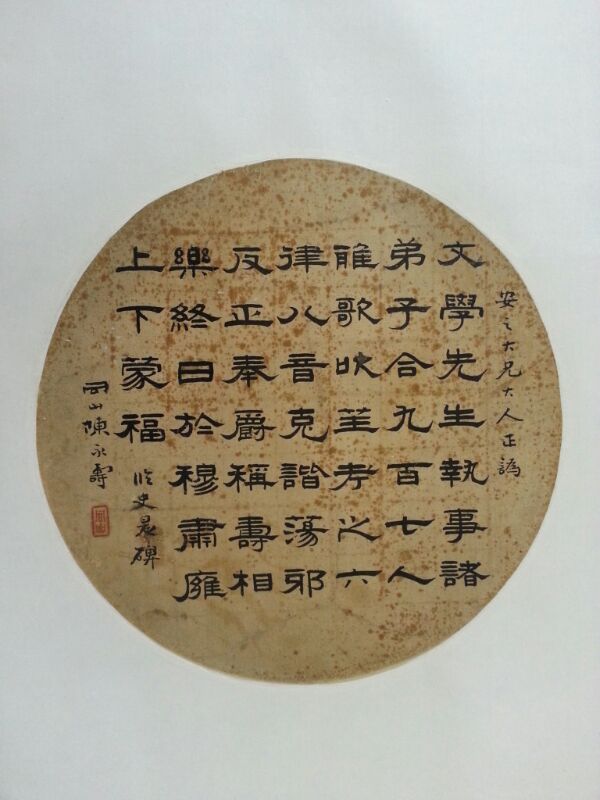 安之大兄大人正譌
文學先生執事諸
弟子合九百七人
雅歌吹笙考之六
律八音克諧蕩邪
反正奉爵稱壽相
樂終日於穆肅雍
上下蒙福 臨史晨碑
岡山陳永壽